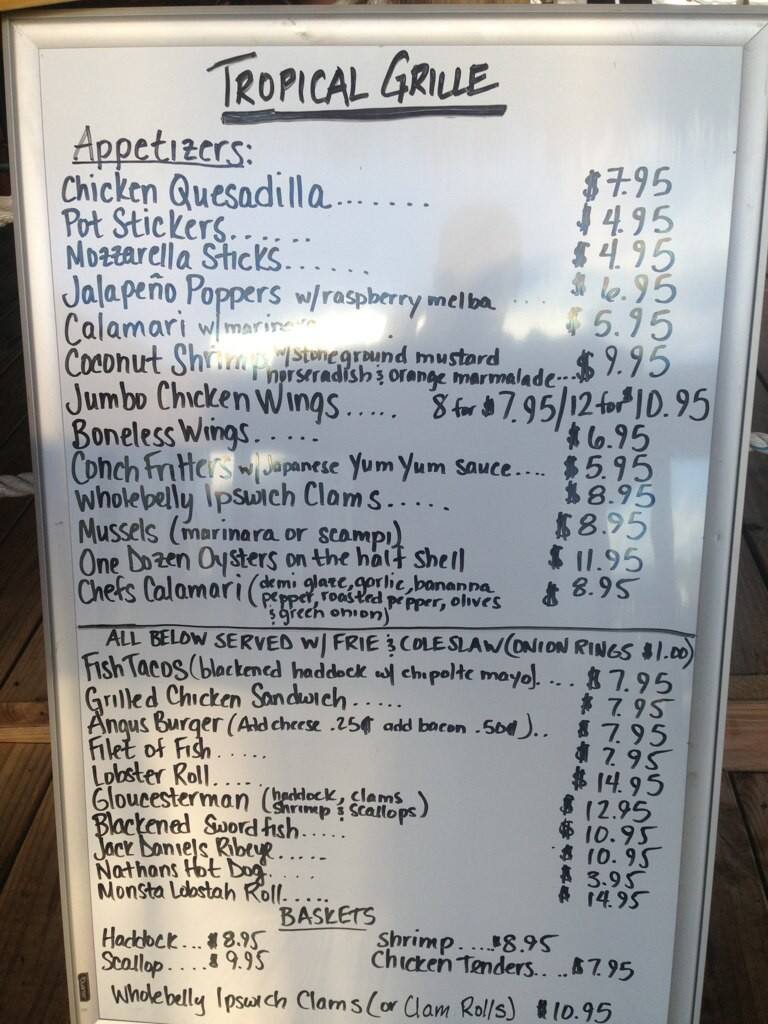 TROPICAL GRILLE
Appetizers:
Chicken Quesadilla....... $7.95
Pot Stickers...... $4.95
Mozzarella Sticks...... $4.95
Jalapeño Poppers w/raspberry melba ... $6.95
Calamari w/marinara $5.95
Coconut Shrimp w/stoneground mustard
horseradish & orange marmalade...$9.95
Jumbo Chicken Wings..... 8 for $7.95/12 for $10.95
Boneless Wings...... $6.95
Conch Fritters w/Japanese Yum Yum sauce.... $5.95
Wholebelly Ipswich Clams..... $8.95
Mussels (marinara or scampi) $8.95
One Dozen Oysters on the half shell $11.95
Chefs Calamari (demi glaze, garlic, bananna
pepper, roasted pepper, olives
& green onion) $8.95
ALL BELOW SERVED W/ FRIE & COLESLAW (ONION RINGS $1.00)
Fish Tacos (blackened haddock w/ chipolte mayo).... $7.95
Grilled Chicken Sandwich..... $7.95
Angus Burger (Add cheese .25¢ add bacon .50¢).. $7.95
Filet of Fish..... $7.95
Lobster Roll..... $14.95
Gloucesterman (haddock, clams
shrimp & scallops) $12.95
Blackened Swordfish..... $10.95
Jack Daniels Ribeye..... $10.95
Nathans Hot Dog..... $3.95
Monsta Lobstah Roll..... $14.95
BASKETS
Haddock... $8.95 Shrimp....$8.95
Scallop....$9.95 Chicken Tenders....$7.95
Wholebelly Ipswich Clams (or Clam Rolls) $10.95